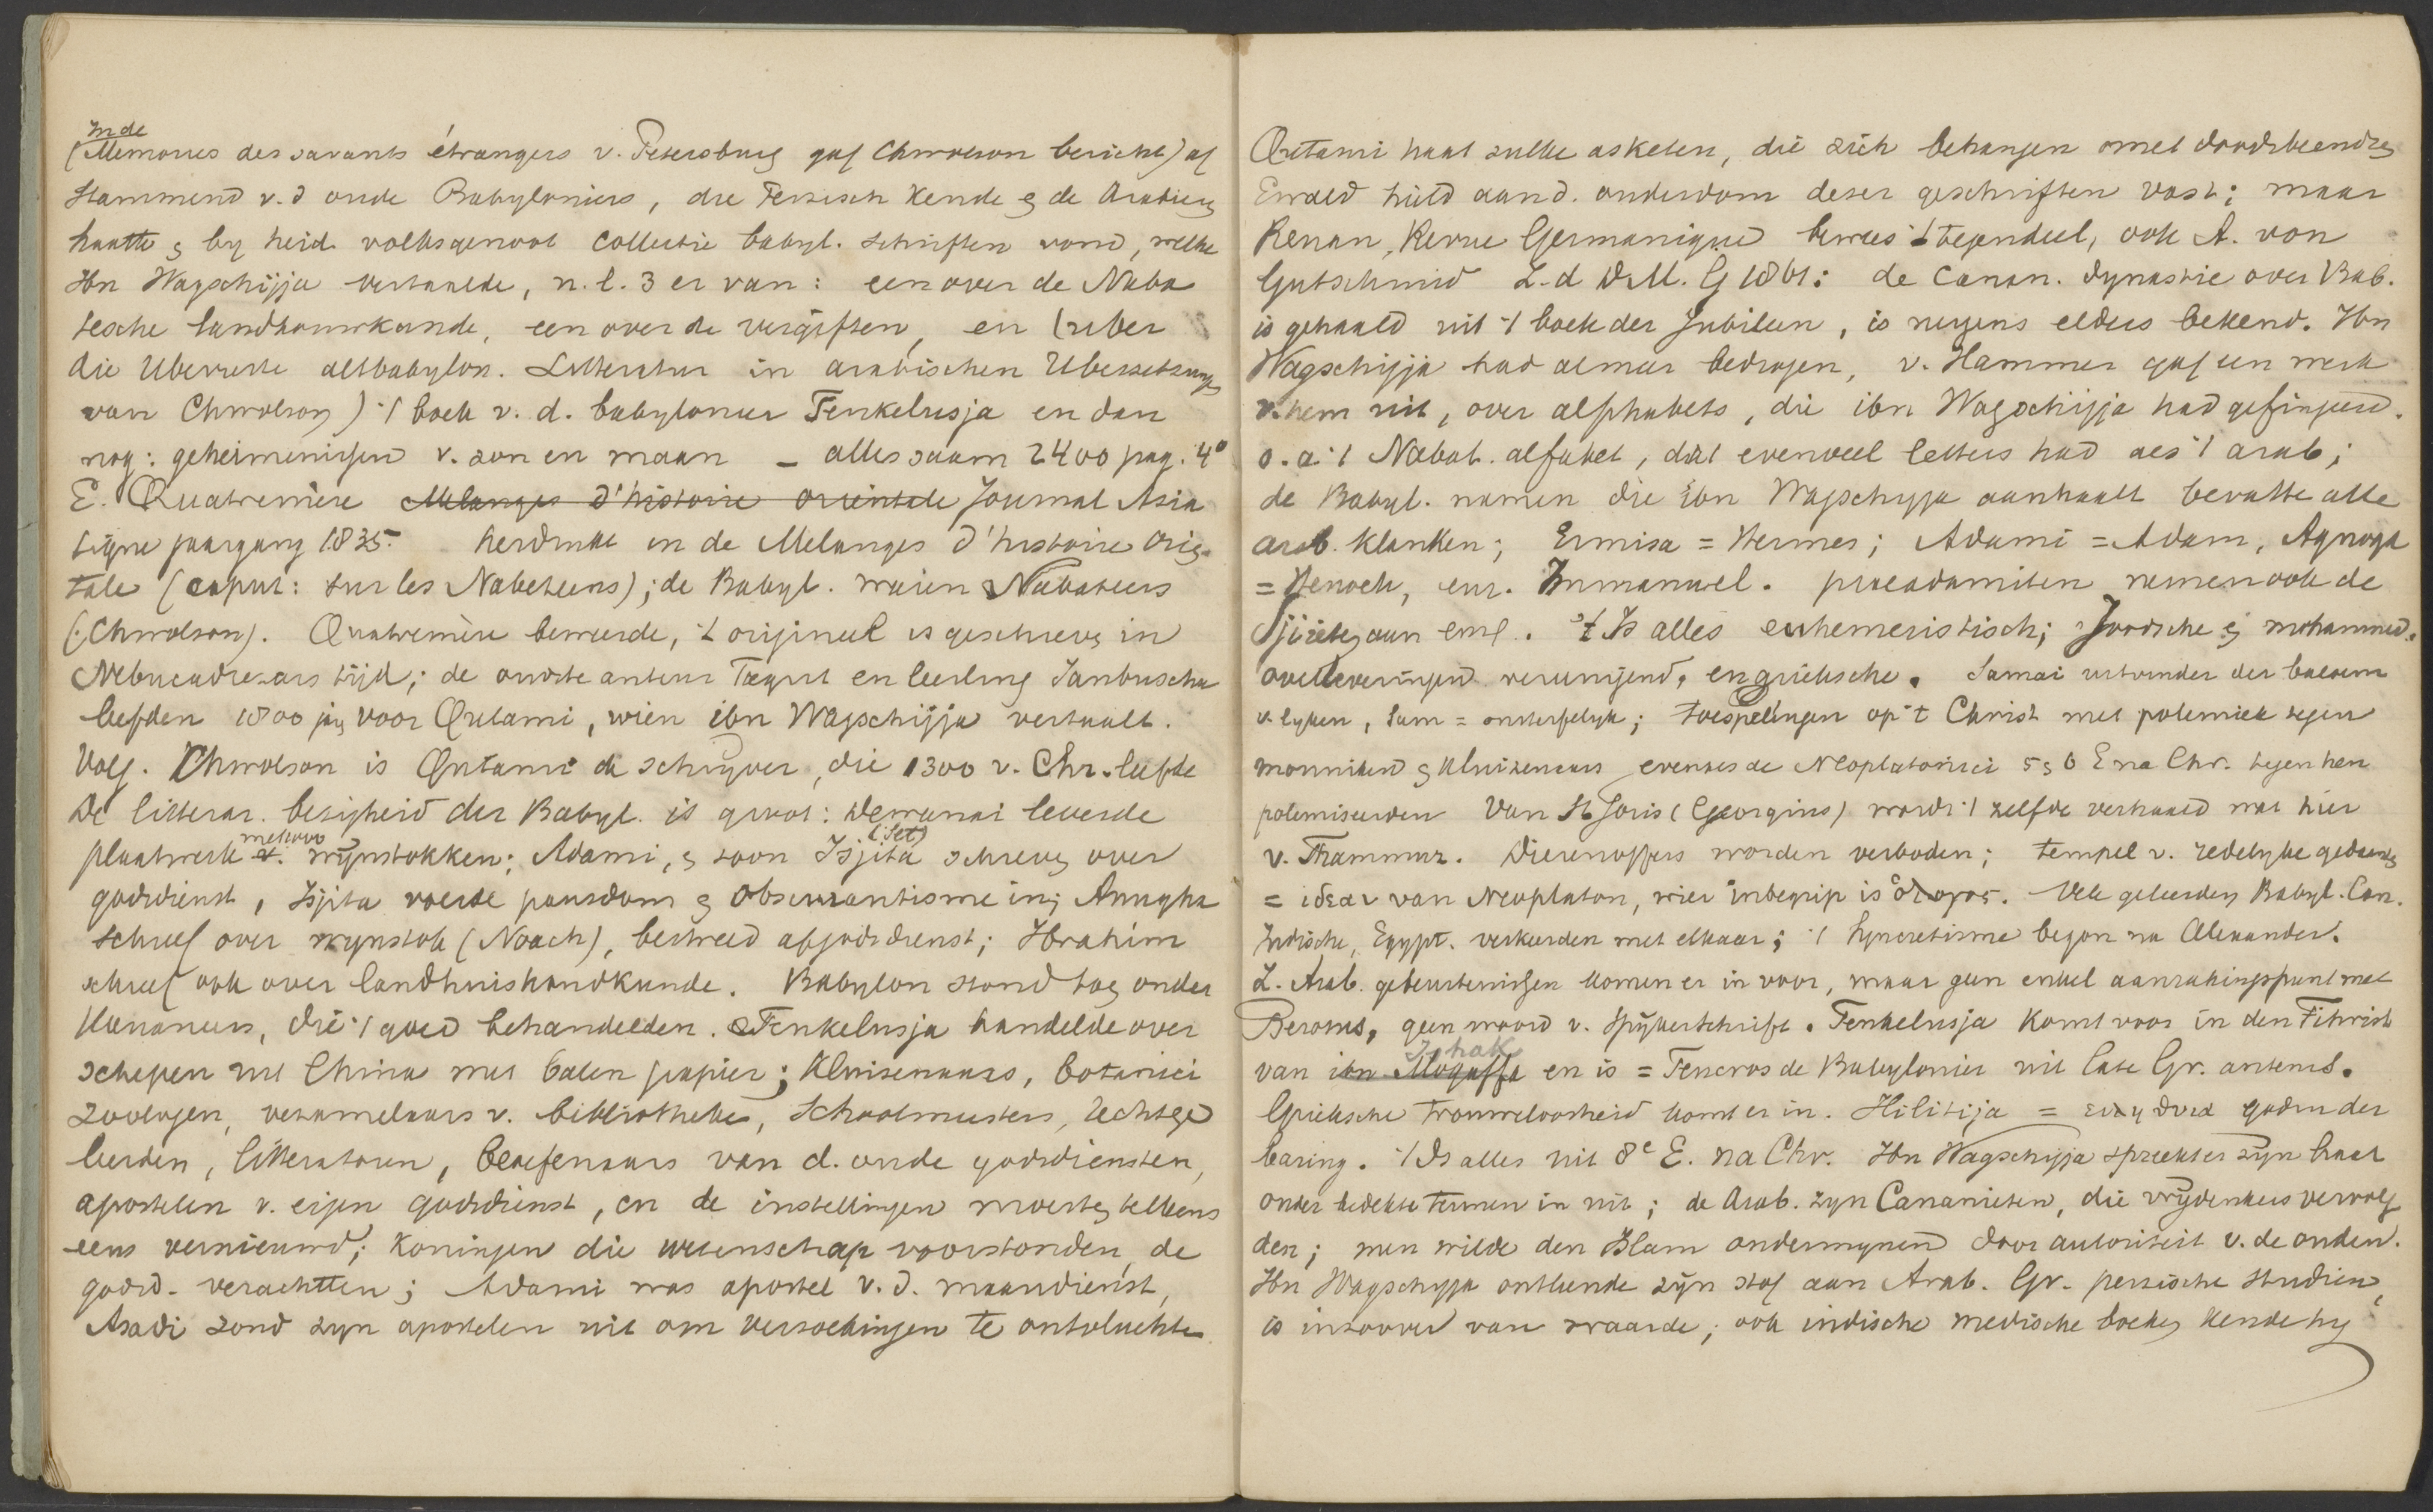 In de
(Memoires des savants étrangers v. Petersburg gaf Chwolson bericht) af
stammend v. d oude Babyloniers, die Perzisch kende & de Arabieren
haatte & by heid. volksgenoot collectie babyl. schriften vond, welke
Ibn Wagschijja vertaalde, n.l. 3 er van: een over de Naba
tesche landbouwkunde, een over de vergiften, en (uber
die Uberreste altbabylon. Litteratur in arabischen Ubersetzungen
van Chwolson) 't boek v. d. babylonier Tenkelusja en dan
nog: geheimenissen v. zon en maan _ alles saam 2400 pag. 4°
E. Quatremère Melanges d'histoire orientale Journal Asia
tique jaargang 1835. herdrukt in de Melanges d'histoire orien
tale (caput: sur les Nabeteens); de Babyl. waren Nabateers
(:Chwolson). Quatremère beweerde, 't origineel is geschreven in
Nebucadrezars tijd; de oudste auteur Dagrit en leerling Janbuscha
leefden 1800 jaar voor Qutami, wien ibn Wagschijja vertaalt.
Volg. Chwolson is Qutami de schrijver, die 1300 v. Chr. leefde
De litterar. bezigheid der Babyl. is groot: Dewanai leverde
plaatwerk v. wijnstokken; Adami, & zoon Isjita (Set) schreven over
godsdienst, Isjita voerde pausdom & obscurantisme in; Anugha
schreef over wynstok (Noach), bestreed afgodsdienst; Ibrahim
schreef ook over landhuishoudkunde. Babylon stond toen onder
Kananeers, die 't goed behandelden. Tenkelusja handelde over
schepen uit China met balen papier; Kluizenaars, botanici
zoologen, verzamelaars v. bibliotheken, Schoolmeesters, rechtsge
leerden, litteratoren, beoefenaars van d. oude godsdiensten,
apostelen v. eigen godsdienst, en de instellingen moesten telkens
eens vernieuwd; Koningen die wetenschap voorstonden, de
godsd. verachtten; Adami was apostel v. d. maandienst,
Asadi zond zyn apostelen uit om verzoekingen te ontvluchten
Qutami haat zulke asketen, die zich behangen met doodsbeenderen
Ewald hield aan d. ouderdom dezer geschriften vast; maar
Renan, Revue Germanique bewees 't tegendeel, ook A. von
Gutschmid Z. d D.M.G 1861: de Canan. dynastie over Bab.
is gehaald uit 't boek der Jubileen, is nergens elders bekend. Ibn
Wagschijja had almeer bedrogen, v. Hammer gaf een werk
v. hem uit, over alphabets, die ibn Wagschijja had gefingeerd.
o. a. 't Nabat. alfabet, dat evenveel letters had als 't arab;
de Babyl. namen die ibn Wagschyja aanhaalt bevatte alle
arab. klanken; Ermisa = Hermes; Adami = Adam,
= Henoch, Immanuel. praeadamiten nemen ook de
Sjiieten aan 't Is alles euhemeristisch; Joodsche & mohammed.
overleveringen vereenigend, en grieksche. Samai uitvinder der balsem
v. lyken, Sam = onsterfelyk; toespelingen op 't Christ met polemiek tegen
monniken & kluizenaars evenals de Neoplatonici 5 & 6 E na Chr. tegen hen
polemiseerden Van St Joris (Georgius) wordt 't zelfde verhaald wat hier
v. Thammuz. Dierenoffers worden verboden; tempel v. redelyke gedaanten
= ιδεαι van Neoplaton, wier inbegrip is ὁ λογος. Vele geleerden Babyl. Can.
Indische, Egypt. verkeerden met elkaar; 't Syncretisme begon na Alexander.
Z. Arab. gebeurtenissen komen er in voor, maar geen enkel aanrakingspunt met
Berosus, geen woord v. spykerschrift. Tenkelusja komt voor in den Fihrist
Ishak
van ibn Moqaffa en is = Teucros de Babylonier uit late Gr. auteurs.
Grieksche trouweloosheid komt er in. Hilitija = ειληθυια godin der
baring. 't Is alles uit 8e E. na Chr. Ibn Wagschyja spreekt er zyn haat
onder bedekte termen in uit; de Arab. zyn Cananieten, die vrydenkers vervolg
den; men wilde den Islam ondermynen door autoriteit v. de ouden.
Ibn Wagschyja ontleende zyn stof aan Arab. Gr. perzische studien,
is inzoover van waarde; ook indische medische boeken kende hy